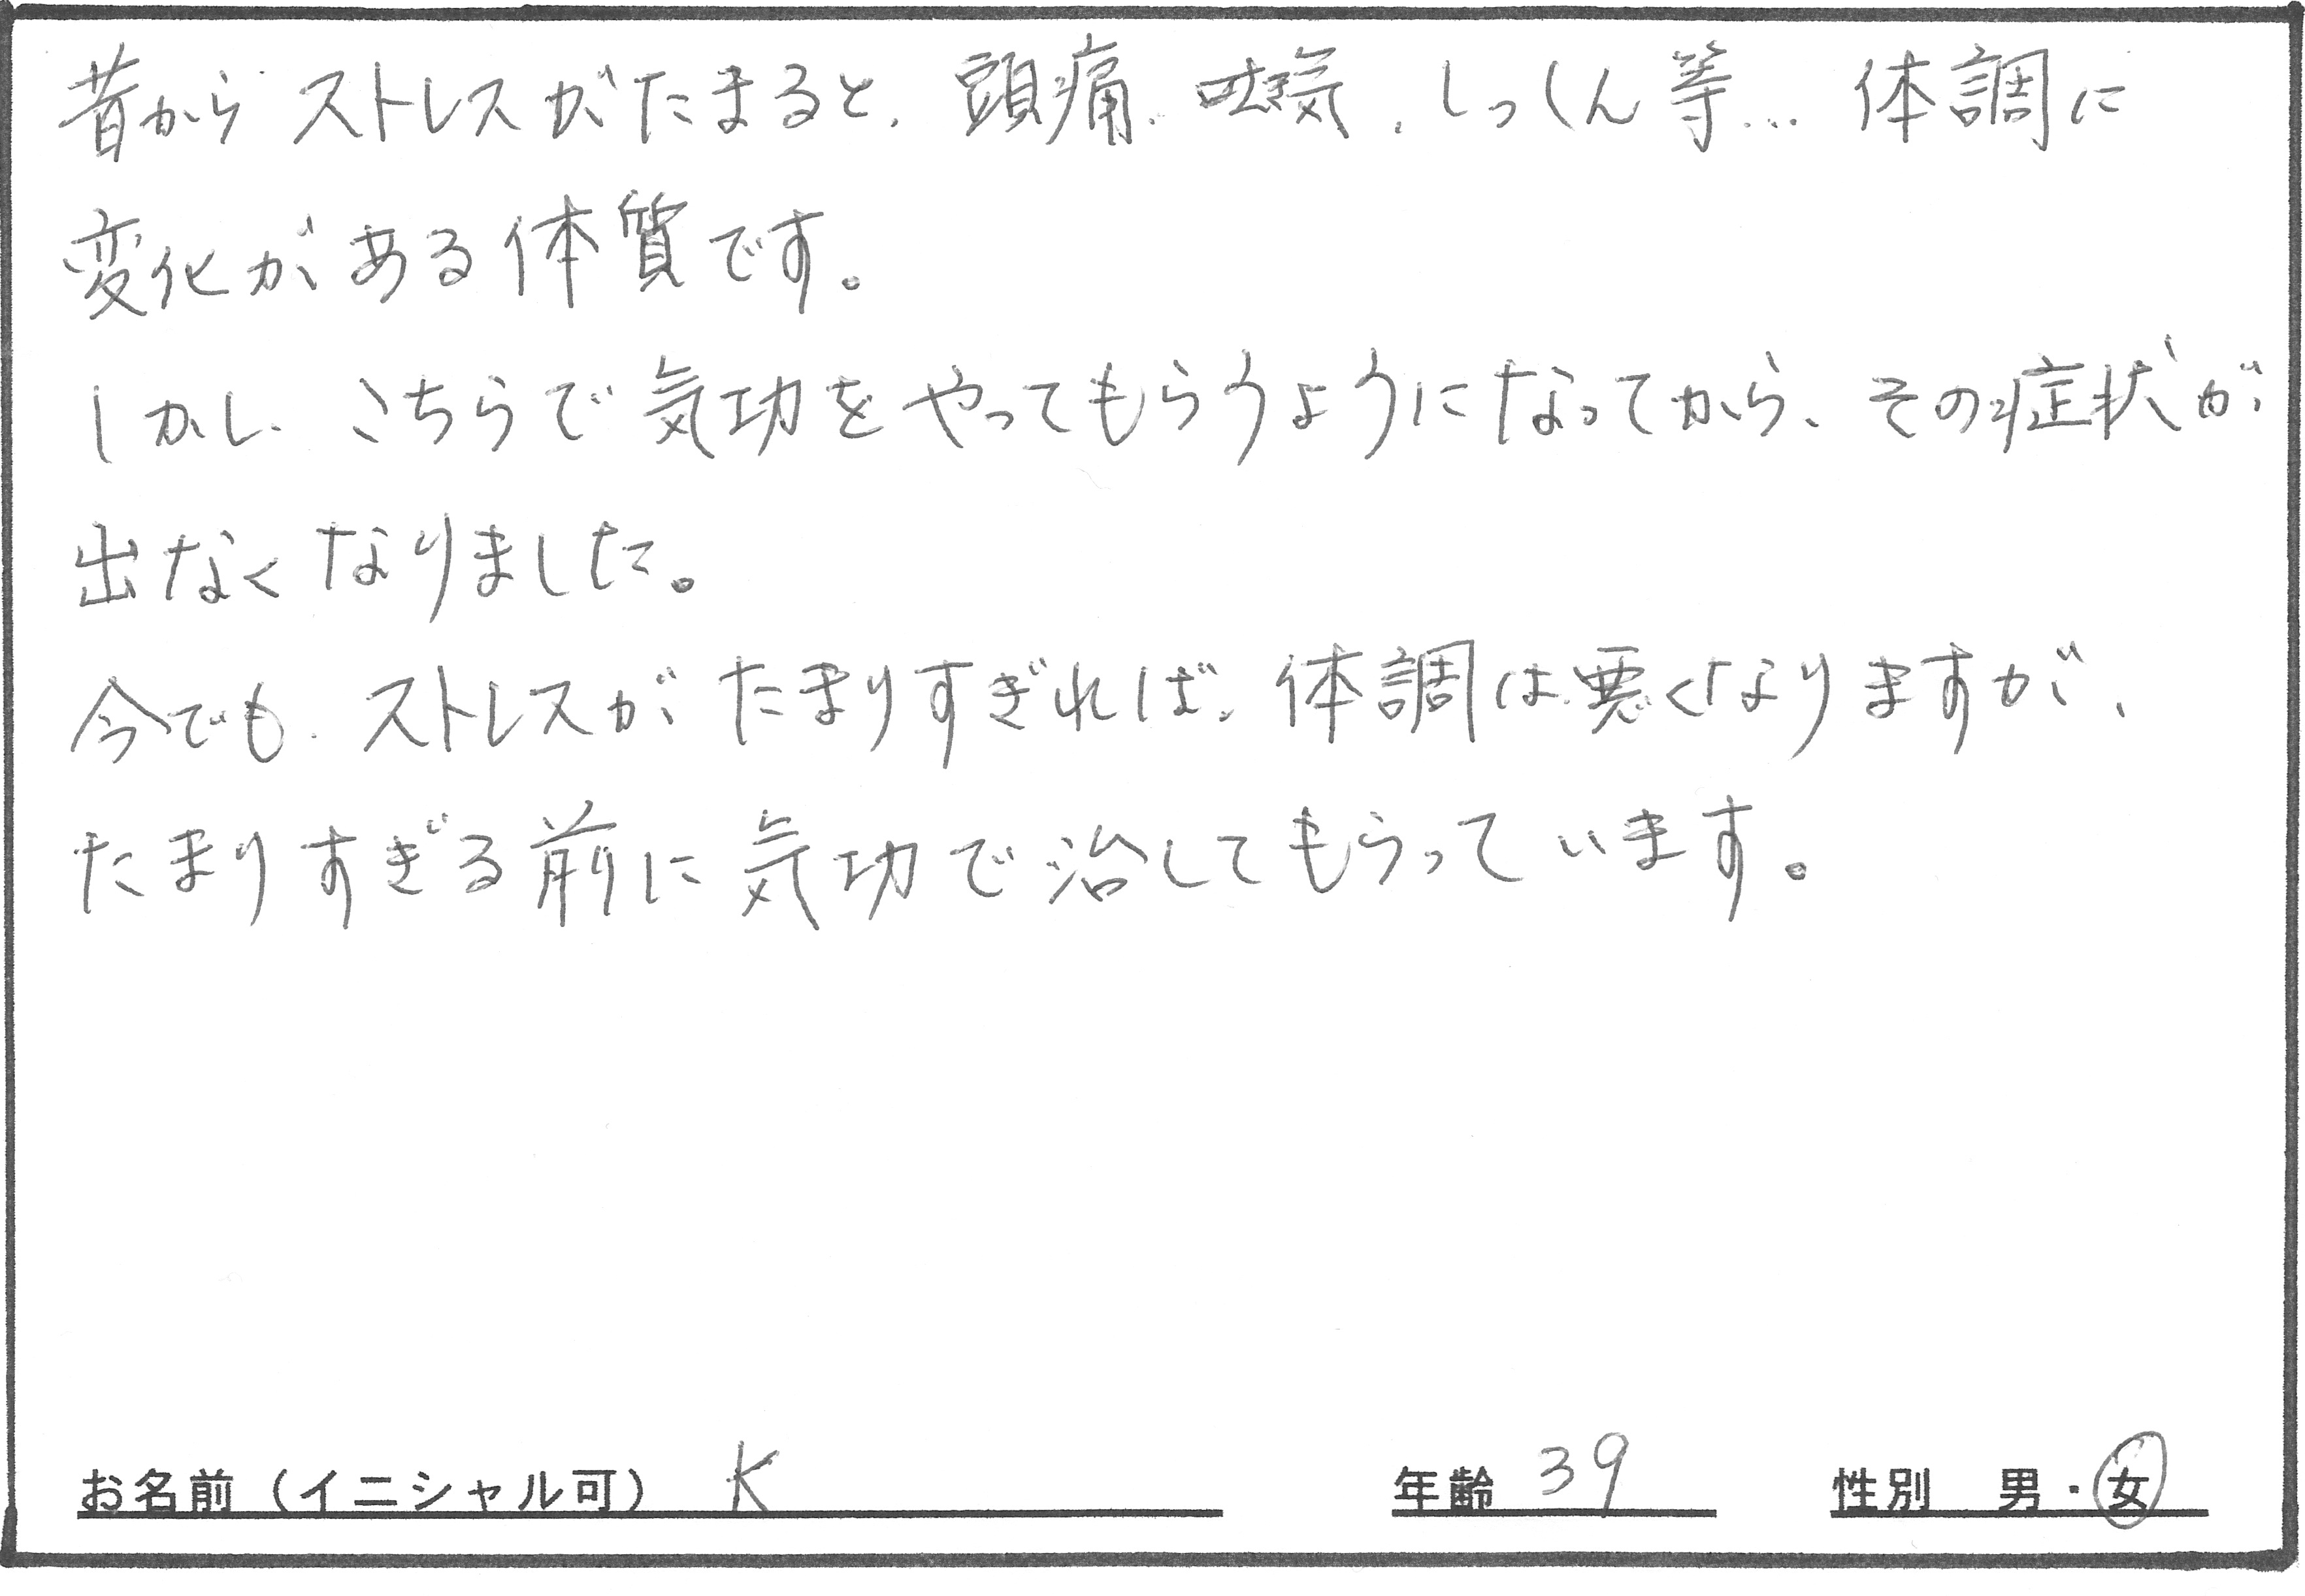 昔からストレスがたまると、頭痛、吐気、しっしん等… 体調に
変化がある体質です。
しかし、こちらで気功をやってもらうようになってから、その症状が
出なくなりました。
今でも、ストレスがたまりすぎれば、体調は悪くなりますが、
たまりすぎる前に気功で治してもらっています。
お名前（イニシャル可） K 年齢 39 性別 男・女